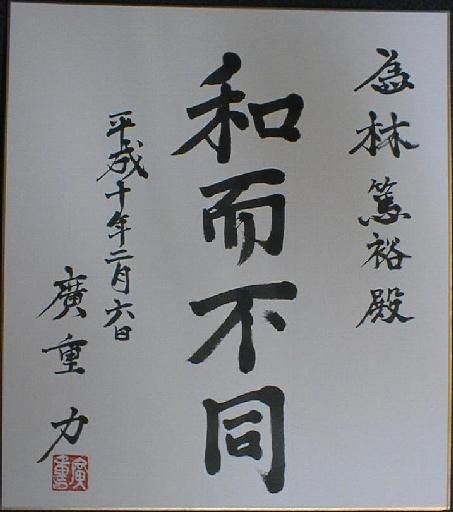 為林篤裕殿
和而不同
平成十年二月六日
廣重力
廣重